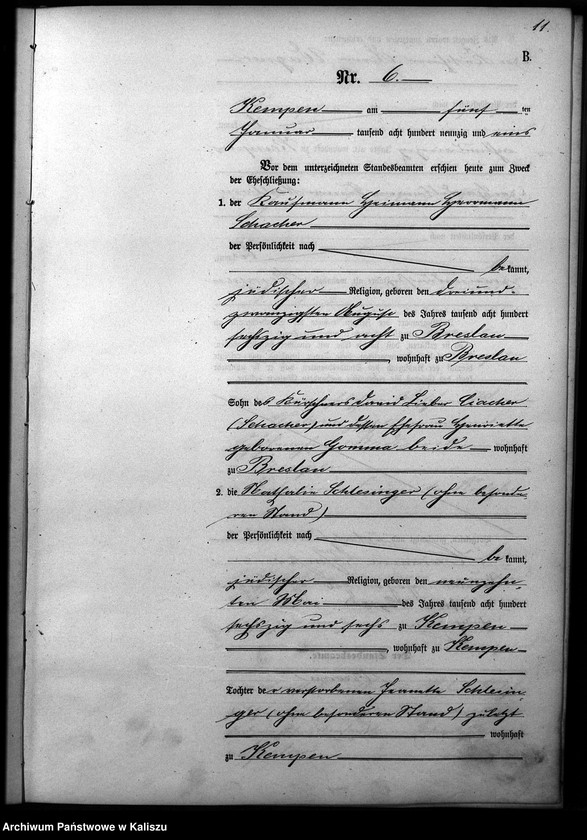 11.
B.
Nr. 6.
Kempen am fünften
Januar tausend acht hundert neunzig und eins
Vor dem unterzeichneten Standesbeamten erschien heute zum Zweck
der Eheschließung:
1. der Kaufmann Heimann Herrmann
Schacher
der Persönlichkeit nach
bekannt,
jüdischer Religion, geboren den dreiund-
zwanzigsten August des Jahres tausend acht hundert
sechszig und acht zu Breslau
, wohnhaft zu Breslau
Sohn des Kürschners David Lieber Ciacher
(Schacher) und dessen Ehefrau Henriette
geborenen Gomma beide wohnhaft
zu Breslau
2. die Nathalie Schlesinger (ohne besonde-
ren Stand)
der Persönlichkeit nach
bekannt,
jüdischer Religion, geboren den neunzehn-
ten Mai des Jahres tausend acht hundert
sechszig und sechs zu Kempen
, wohnhaft zu Kempen
Tochter der verstorbenen Jeanette Schlesin-
ger (ohne besonderen Stand) zuletzt
wohnhaft
zu Kempen
Archiwum Państwowe w Kaliszu